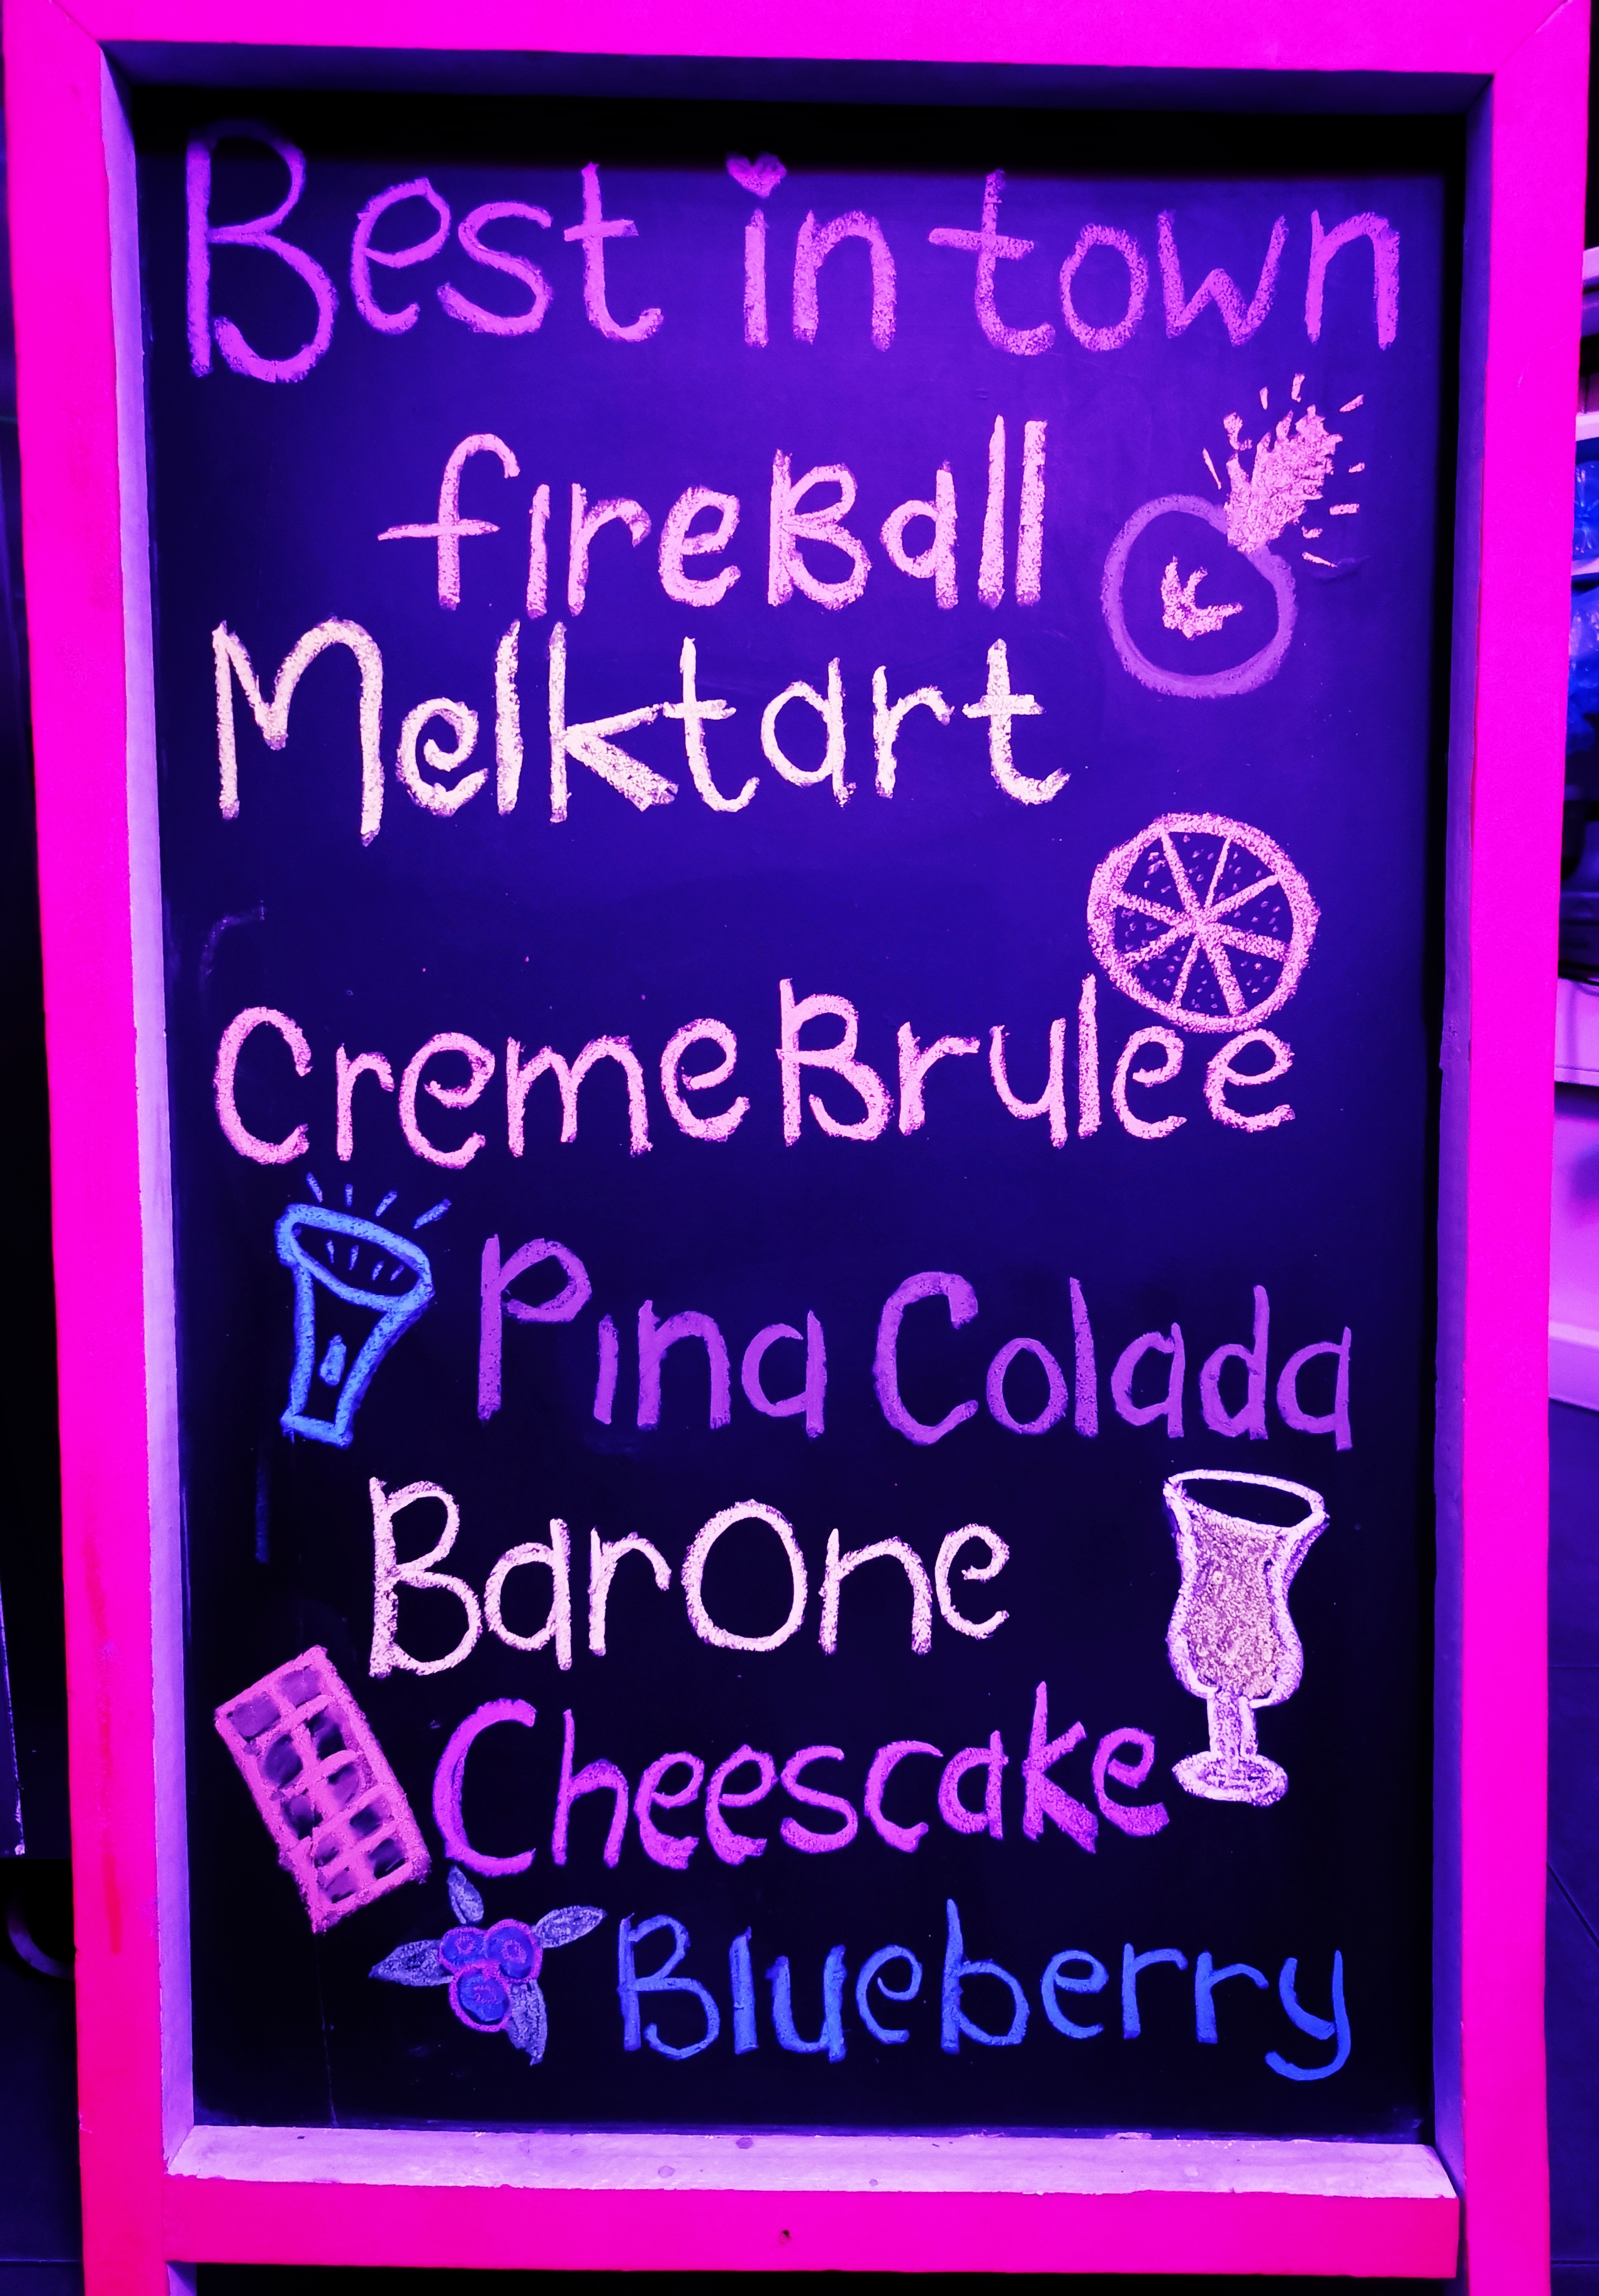 Best in town
fireBall
Melktart
Creme Brulee
Pina Colada
BarOne
Cheescake
Blueberry